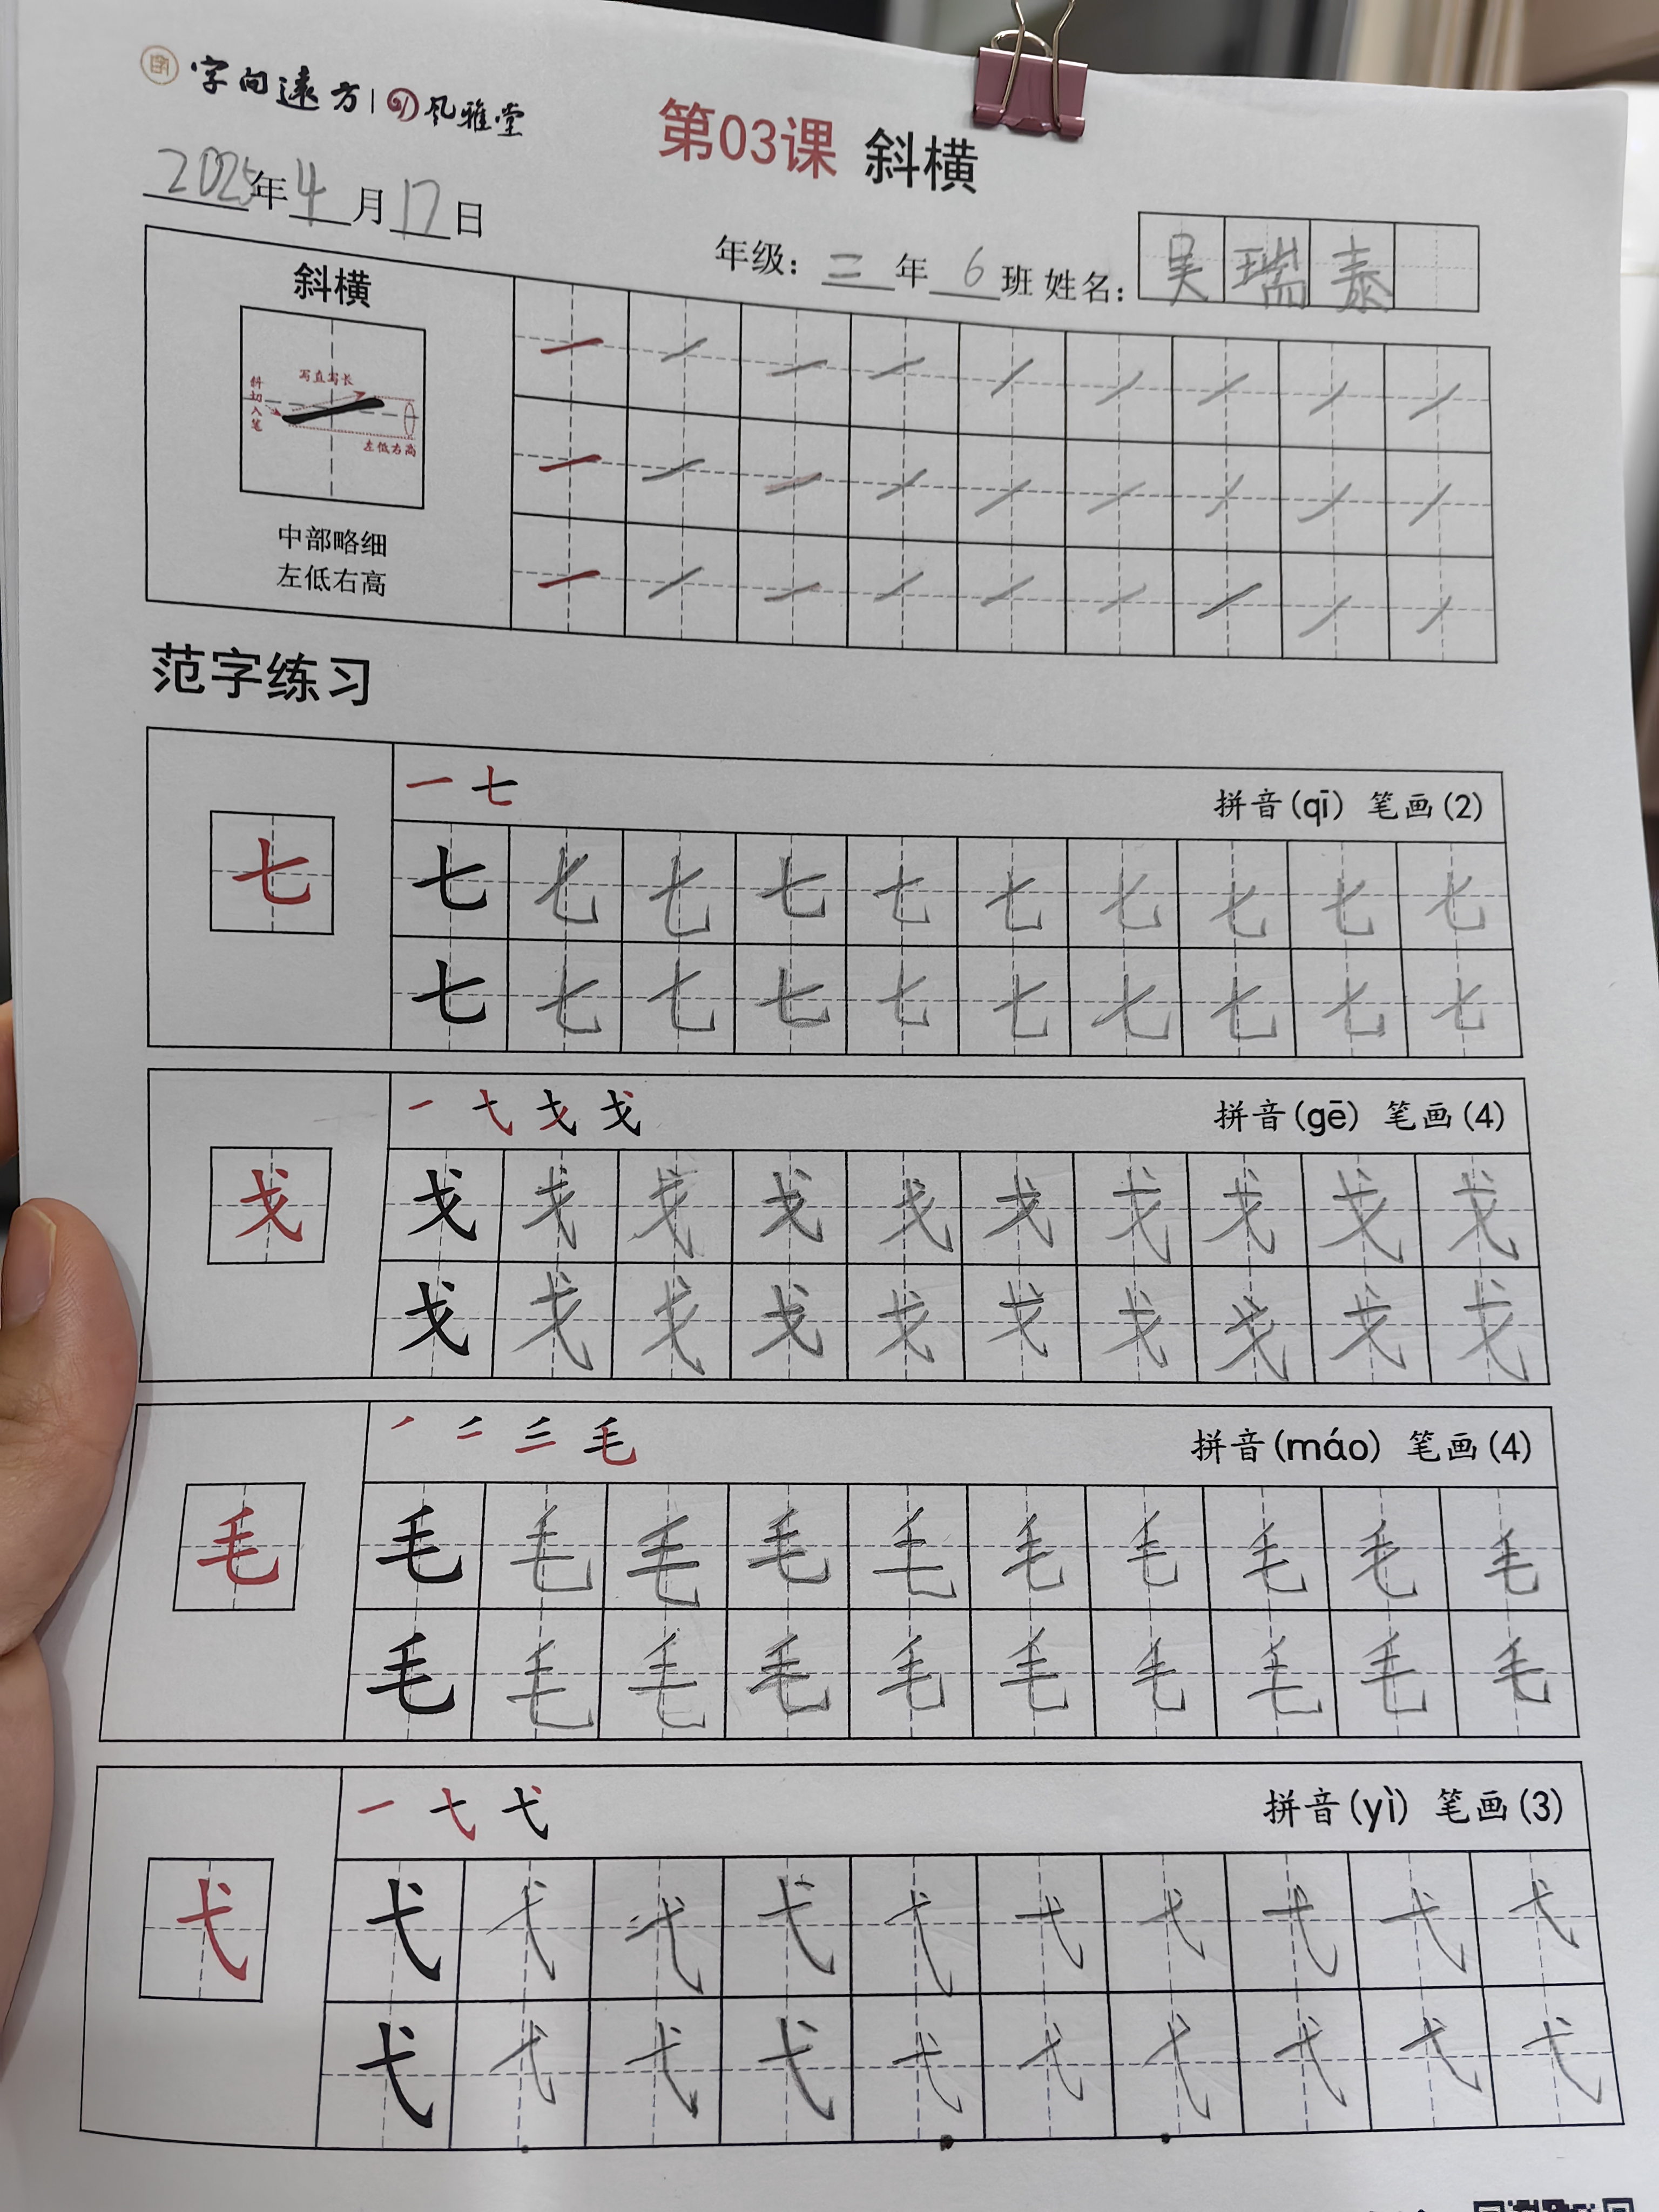 字向远方 | 风雅堂
第03课 斜横
2025年4月17日
年级：三年6班 姓名：吴瑞泰
斜横
写直写长
斜切入笔
左低右高
中部略细
左低右高
一 一 一 一 一 一 一 一 一
一 一 一 一 一 一 一 一 一
一 一 一 一 一 一 一 一 一
范字练习
一 七 拼音(qī) 笔画(2)
七
七 七 七 七 七 七 七 七 七 七
七 七 七 七 七 七 七 七 七 七
一 弋 戈 戈 拼音(gē) 笔画(4)
戈
戈 戈 戈 戈 戈 戈 戈 戈 戈 戈
戈 戈 戈 戈 戈 戈 戈 戈 戈 戈
毛 拼音(máo) 笔画(4)
毛
毛 毛 毛 毛 毛 毛 毛 毛 毛 毛
毛 毛 毛 毛 毛 毛 毛 毛 毛 毛
一 弋 弋 拼音(yì) 笔画(3)
弋
弋 弋 弋 弋 弋 弋 弋 弋 弋 弋
弋 弋 弋 弋 弋 弋 弋 弋 弋 弋